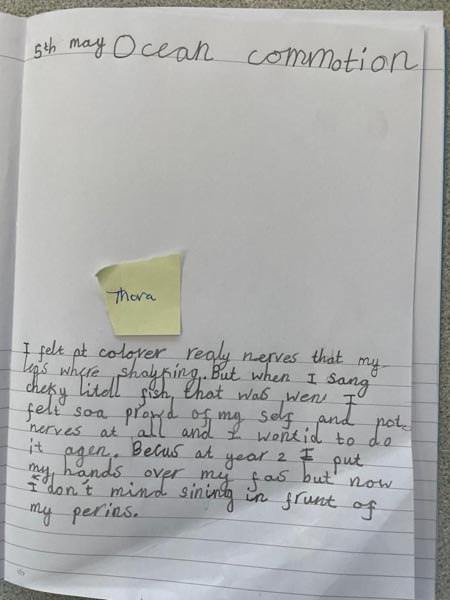 5th may Ocean commotion
Thora
I felt at colover realy nerves that my
legs where shayking. But when I sang
cheky litell fish that was wen I
felt soa prowd of my self and not
nerves at all and I wontid to do
it agen. Becus at year 2 I put
my hands over my fas but now
I don't mind sining in frunt of
my perins.